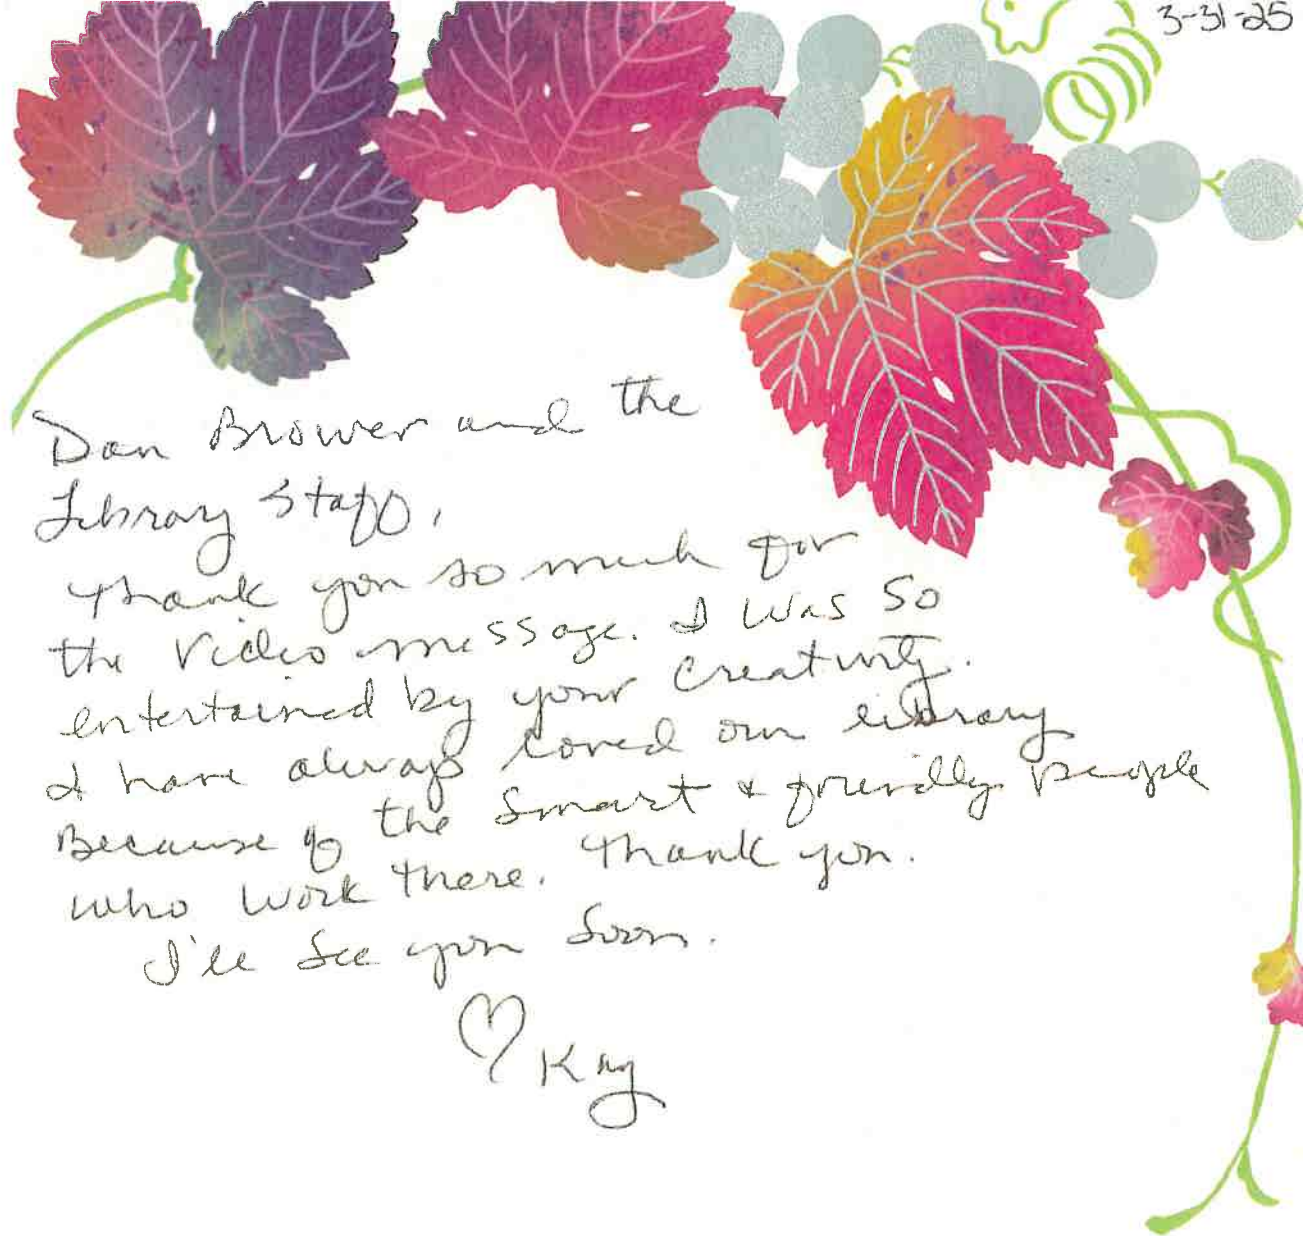 3-31-25
Dan Brower and the
Library Staff,
Thank you so much for
the video message. I was so
entertained by your creativity.
I have always loved our library
Because of the smart & friendly people
who work there. Thank you.
I'll see you soon.
♡ Kay